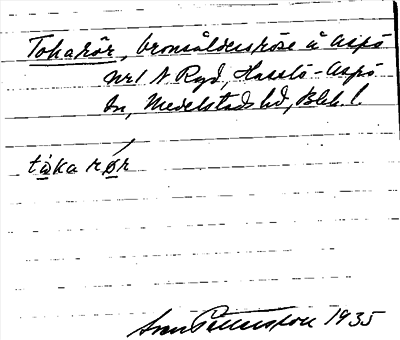 Tokarör, bronsåldersröse å Aspö
nr 1 N Ryd, Hasslö-Aspö
sn, Medelstads hd, Blek. l.
tωka rør
Sven Petterson 1935